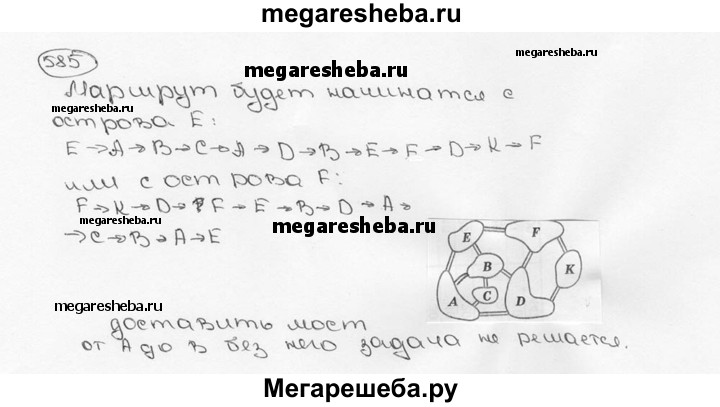 megaresheba.ru
585
megaresheba.ru
megaresheba.ru
Маршрут будет начинатся с
megaresheba.ru
острова E:
E→A→B→C→A→D→B→E→F→D→K→F
или с острова F:
F→K→D→F→E→B→D→A→
megaresheba.ru
→C→B→A→E
megaresheba.ru
E F
B K
A C D
megaresheba.ru
доставить мост
от A до B без него задача не решается.
Мегарешеба.ру